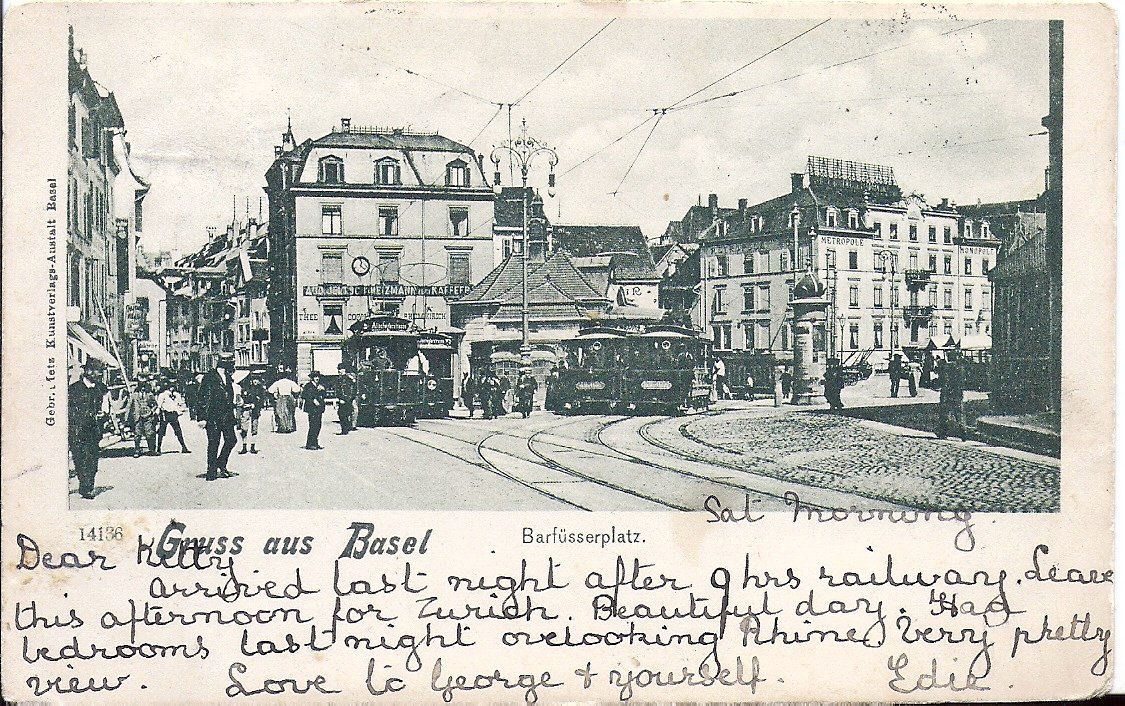 METROPOLE
MONOPOL
THEE
Gebr. Metz Kunstverlags-Anstalt Basel
14136
Gruss aus Basel
Barfüsserplatz.
Sat Morning.
Dear Kitty
arrived last night after 9 hrs railway. Leave
this afternoon for Zurich. Beautiful day. Had
bedrooms last night ovelooking Rhine. Very pretty
view. Love to George & yourself. Edie.